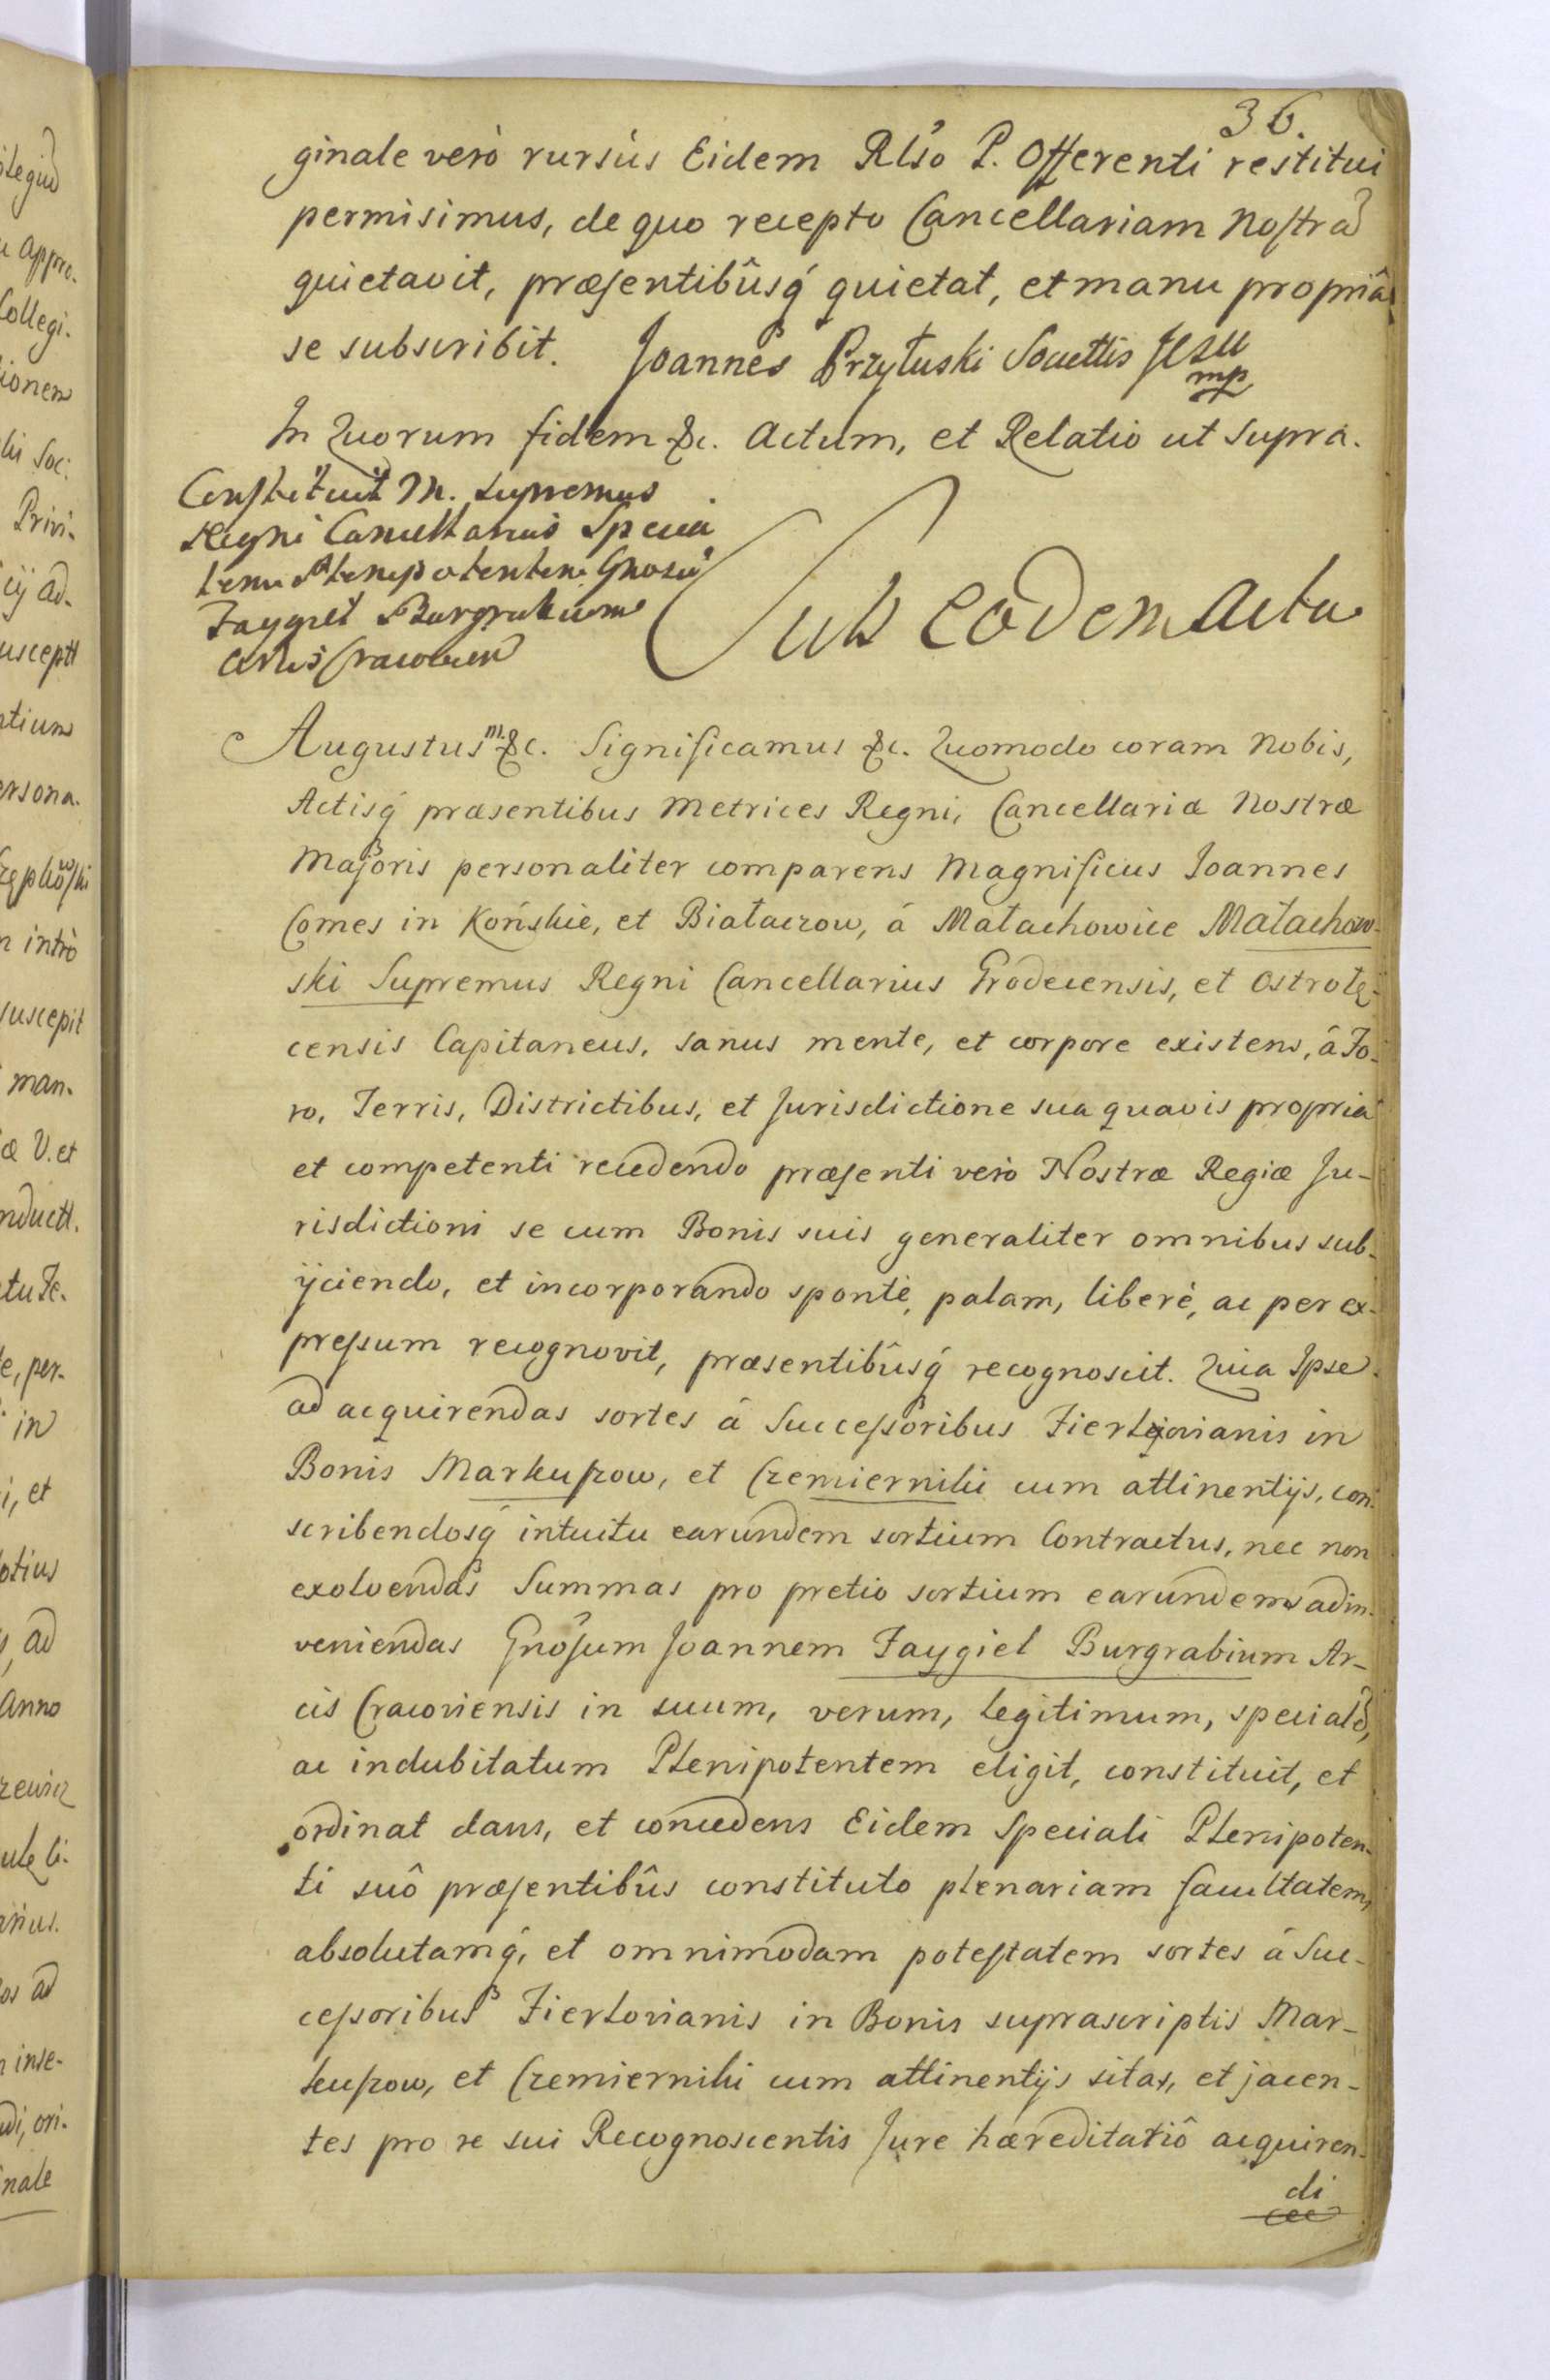 36.
ginale verò rursùs Eidem Rlso P. Offerenti restitui
permisimus, de quo recepto Cancellariam Nostrã
quietavit, præsentibûsq́ quietat, et manu propriâ
se subscribit. Joannes Przyłuski Socuettis Jesu
mp
In Quorum fidem &c. Actum, et Relatio ut supra.
Constituit M. Supremus
Regni Cancellarius Specia
lem Plenipotentem Gnosũ
Faygiel Burgrabium
Arcis Cracovien
Sub eodem actu
Augustus III. &c. Significamus &c. Quomodo coram Nobis,
Actisq́ præsentibus Metrices Regni, Cancellariæ Nostræ
Majoris personaliter comparens Magnificus Joannes
Comes in Końskie, et Białaczow, á Małachowice Małachow-
ski Supremus Regni Cancellarius Grodecensis, et Ostrołę-
censis Capitaneus, sanus mente, et corpore existens, â Fo-
ro, Terris, Districtibus, et Jurisdictione sua quavis propria
et competenti recedendo præsenti verò Nostræ Regiæ Ju-
risdictioni se cum Bonis suis generaliter omnibus sub-
ijciendo, et incorporando sponte, palam, liberè, ac per ex-
pressum recognovit, præsentibûsq́ recognoscit. Quia Ipse
ad acquirendas sortes á Successoribus Fierlejovianis in
Bonis Markuszow, et Czemierniki cum attinentijs, con-
scribendosq́ intuitu earundem sortium Contractus, nec non
exolvendas Summas pro pretio sortium earundem adin-
veniendas Gnosum Joannem Faygiel Burgrabium Ar-
cis Cracoviensis in suum, verum, legitimum, specialẽ,
ac indubitatum Plenipotentem eligit, constituit, et
ordinat dans, et concedens Eidem Speciali Plenipoten-
ti suô præsentibûs constituto plenariam facultatem,
absolutamq́, et omnimodam potestatem sortes á Suc-
cessoribus Fierlovianis in Bonis suprascriptis Mar-
kuszow, et Czemierniki cum attinentijs sitas, et jacen-
tes pro re sui Recognoscentis Jure hæreditatiô acquiren-
di